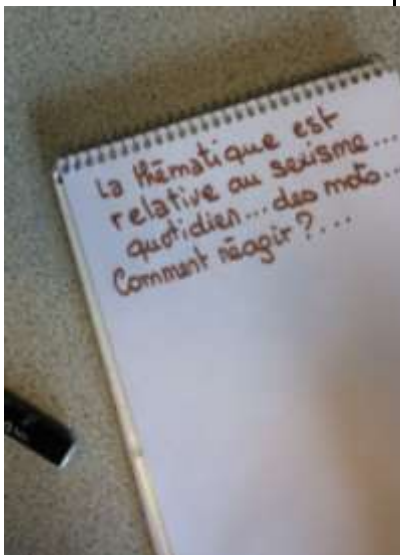 La thématique est
relative au sexisme...
quotidien... des mots...
Comment réagir ?...